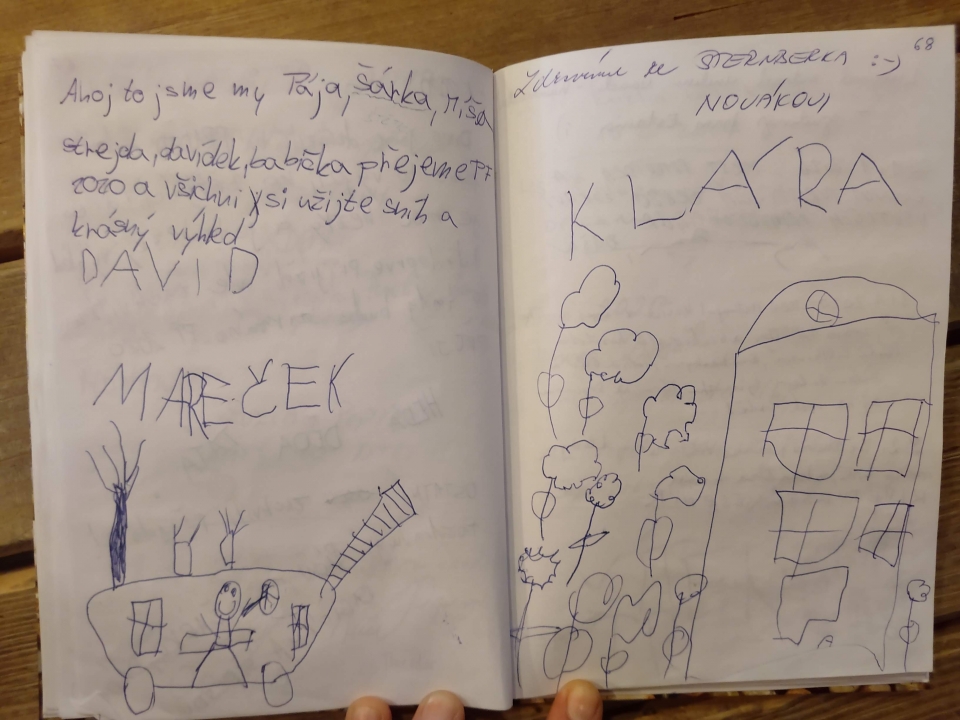 Ahoj to jsme my Pája, Šárka, Míša
strejda, davídek, babička přejeme PF
2020 a všichni si užijte sníh a
krásný výhled
DAVID
MAREČEK
68
Zdravíme ze ŠTERNBERKA :-)
NOVÁKOVI
KLÁRA